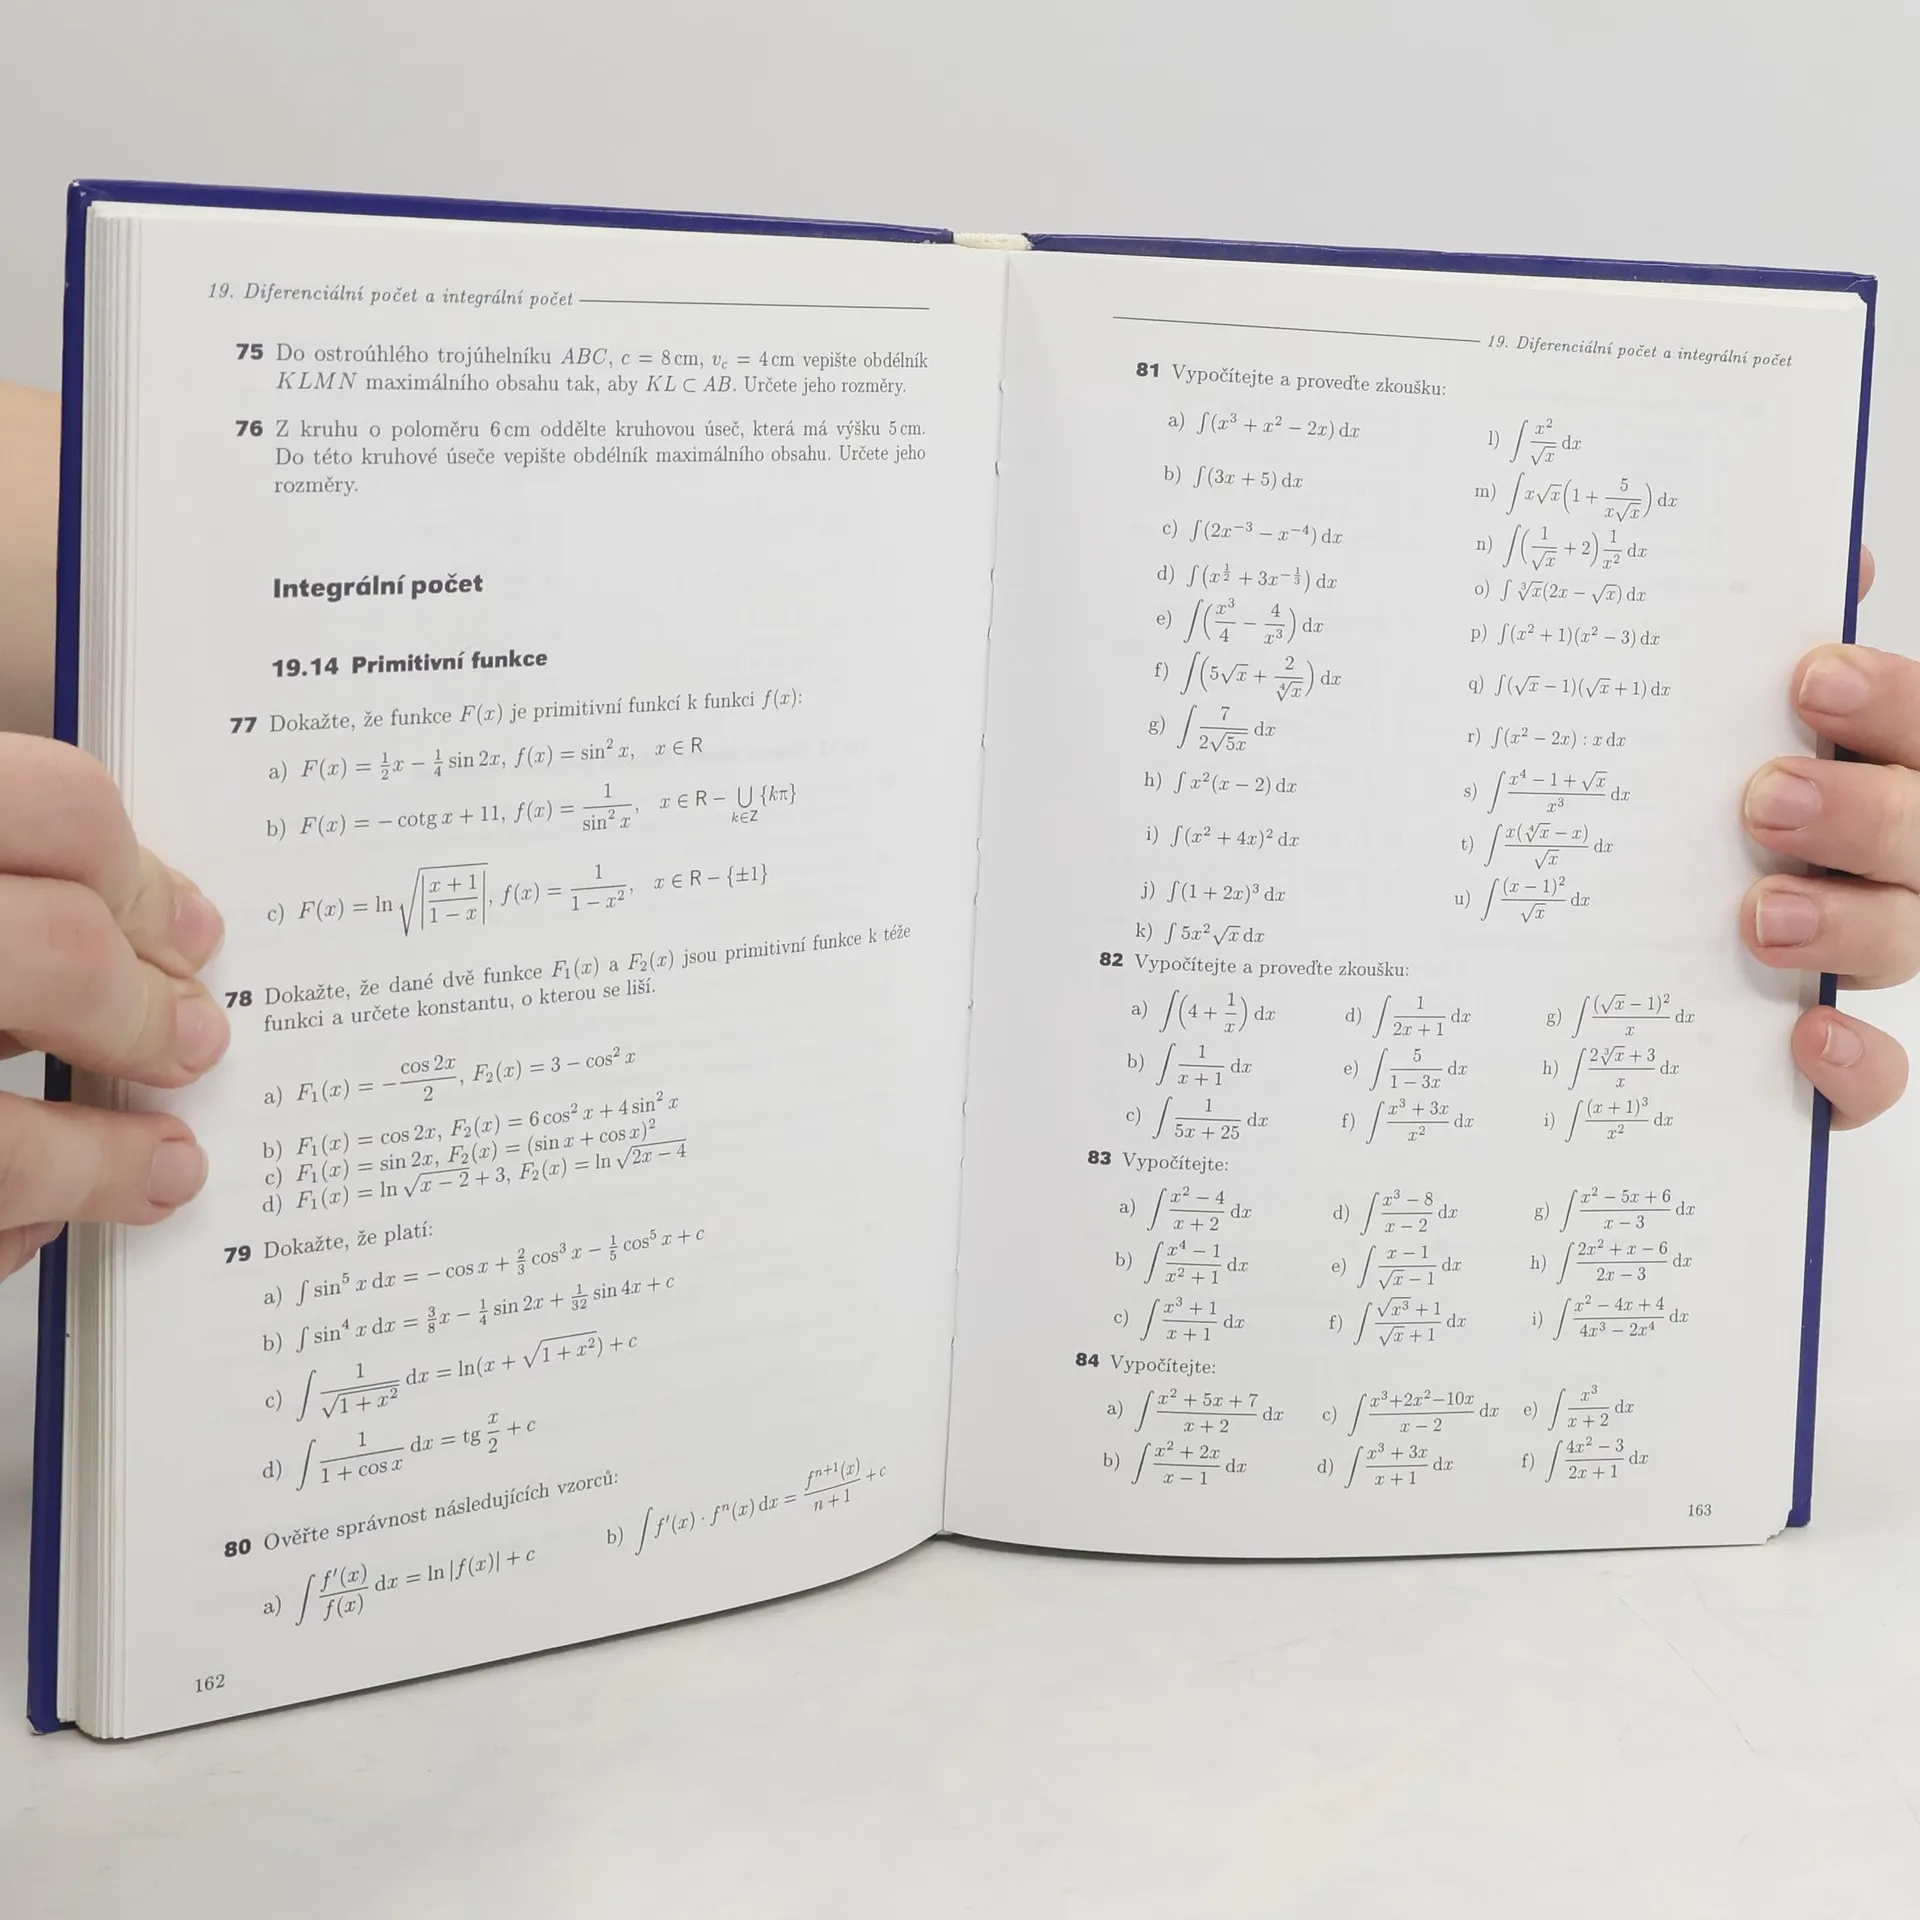 19. Diferenciální počet a integrální počet
75 Do ostroúhlého trojúhelníku ABC, c = 8 cm, v_c = 4 cm vepište obdélník
KLMN maximálního obsahu tak, aby KL ⊂ AB. Určete jeho rozměry.
76 Z kruhu o poloměru 6 cm oddělte kruhovou úseč, která má výšku 5 cm.
Do této kruhové úseče vepište obdélník maximálního obsahu. Určete jeho
rozměry.
Integrální počet
19.14 Primitivní funkce
77 Dokažte, že funkce F(x) je primitivní funkcí k funkci f(x):
a) F(x) = 1/2 x − 1/4 sin 2x, f(x) = sin² x, x ∈ R
b) F(x) = − cotg x + 11, f(x) = 1/(sin² x), x ∈ R − ⋃_{k∈Z} {kπ}
c) F(x) = ln √|(x + 1)/(1 − x)|, f(x) = 1/(1 − x²), x ∈ R − {±1}
78 Dokažte, že dané dvě funkce F₁(x) a F₂(x) jsou primitivní funkce k téže
funkci a určete konstantu, o kterou se liší.
a) F₁(x) = −(cos 2x)/2, F₂(x) = 3 − cos² x
b) F₁(x) = cos 2x, F₂(x) = 6 cos² x + 4 sin² x
c) F₁(x) = sin 2x, F₂(x) = (sin x + cos x)²
d) F₁(x) = ln √(x − 2) + 3, F₂(x) = ln √(2x − 4)
79 Dokažte, že platí:
a) ∫ sin⁵ x dx = − cos x + 2/3 cos³ x − 1/5 cos⁵ x + c
b) ∫ sin⁴ x dx = 3/8 x − 1/4 sin 2x + 1/32 sin 4x + c
c) ∫ 1/√(1 + x²) dx = ln(x + √(1 + x²)) + c
d) ∫ 1/(1 + cos x) dx = tg x/2 + c
80 Ověřte správnost následujících vzorců:
a) ∫ f′(x)/f(x) dx = ln |f(x)| + c
b) ∫ f′(x) · fⁿ(x) dx = fⁿ⁺¹(x)/(n + 1) + c
162
19. Diferenciální počet a integrální počet
81 Vypočítejte a proveďte zkoušku:
a) ∫(x³ + x² − 2x) dx
b) ∫(3x + 5) dx
c) ∫(2x⁻³ − x⁻⁴) dx
d) ∫(x^(1/2) + 3x^(−1/3)) dx
e) ∫(x³/4 − 4/x³) dx
f) ∫(5√x + 2/∜x) dx
g) ∫ 7/(2√(5x)) dx
h) ∫ x²(x − 2) dx
i) ∫(x² + 4x)² dx
j) ∫(1 + 2x)³ dx
k) ∫ 5x²√x dx
l) ∫ x²/√x dx
m) ∫ x√x(1 + 5/(x√x)) dx
n) ∫(1/√x + 2) 1/x² dx
o) ∫ ∛x(2x − √x) dx
p) ∫(x² + 1)(x² − 3) dx
q) ∫(√x − 1)(√x + 1) dx
r) ∫(x² − 2x) : x dx
s) ∫ (x⁴ − 1 + √x)/x³ dx
t) ∫ x(∜x − x)/√x dx
u) ∫ (x − 1)²/√x dx
82 Vypočítejte a proveďte zkoušku:
a) ∫(4 + 1/x) dx d) ∫ 1/(2x + 1) dx g) ∫ (√x − 1)²/x dx
b) ∫ 1/(x + 1) dx e) ∫ 5/(1 − 3x) dx h) ∫ (2∛x + 3)/x dx
c) ∫ 1/(5x + 25) dx f) ∫ (x³ + 3x)/x² dx i) ∫ (x + 1)³/x² dx
83 Vypočítejte:
a) ∫ (x² − 4)/(x + 2) dx d) ∫ (x³ − 8)/(x − 2) dx g) ∫ (x² − 5x + 6)/(x − 3) dx
b) ∫ (x⁴ − 1)/(x² + 1) dx e) ∫ (x − 1)/(√x − 1) dx h) ∫ (2x² + x − 6)/(2x − 3) dx
c) ∫ (x³ + 1)/(x + 1) dx f) ∫ (√(x³) + 1)/(√x + 1) dx i) ∫ (x² − 4x + 4)/(4x³ − 2x⁴) dx
84 Vypočítejte:
a) ∫ (x² + 5x + 7)/(x + 2) dx c) ∫ (x³+2x²−10x)/(x − 2) dx e) ∫ x³/(x + 2) dx
b) ∫ (x² + 2x)/(x − 1) dx d) ∫ (x³ + 3x)/(x + 1) dx f) ∫ (4x² − 3)/(2x + 1) dx
163